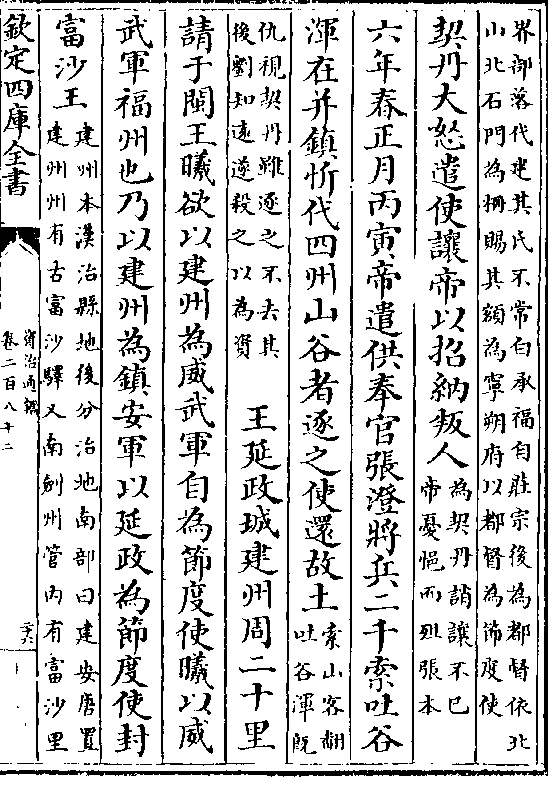 界部落代建其氏不常白承福自莊宗後為都督依北
山北石門為柵賜其額為寧朔府以都督為節度使
契丹大怒遣使讓帝以招納叛人
為契丹誚讓不已
帝憂悒而殂張本
六年春正月丙寅帝遣供奉官張澄將兵二千索吐谷
渾在并鎮忻代四州山谷者逐之使還故土
索山客翻
吐谷渾既
仇視契丹雖逐之不去其
後劉知遠遂殺之以為資
王延政城建州周二十里
請于閩王曦欲以建州為威武軍自為節度使曦以威
武軍福州也乃以建州為鎮安軍以延政為節度使封
富沙王
建州本漢治縣地後分治地南部曰建安唐置
建州州有古富沙驛又南劍州管内有富沙里
欽定四庫全書
資治通鑑
卷二百八十二